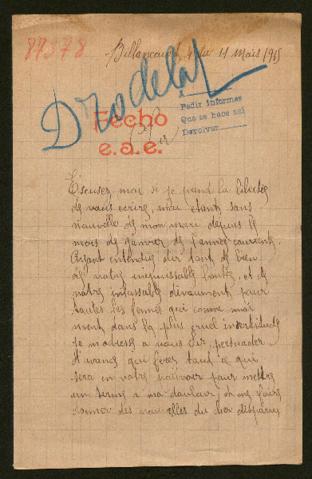 87578
Billancourt le 11 Mars 1915
Drodelot
Fecho
e.a.e.
A
Pedir informes
Que se hace así
Devolver
Excusez moi si je prend la liberté
de vous écrire, mai étant sans
nouvelle de mon mari depuis le
mois de janvier de l'année courante.
Ayant entendue dir tant de bien
de votre inépuissable bonté, et de
votre infassable dévouement pour
toutes les femmes qui comme moi
sont dans la plus cruel incertitude
je m'adresse a vous Sir, persuader
d'avance que ferez tout ce qui
sera en votre pouvoir pour mettre
un terme a ma douleur, et me faire
donner des nouvelles du cher disparu